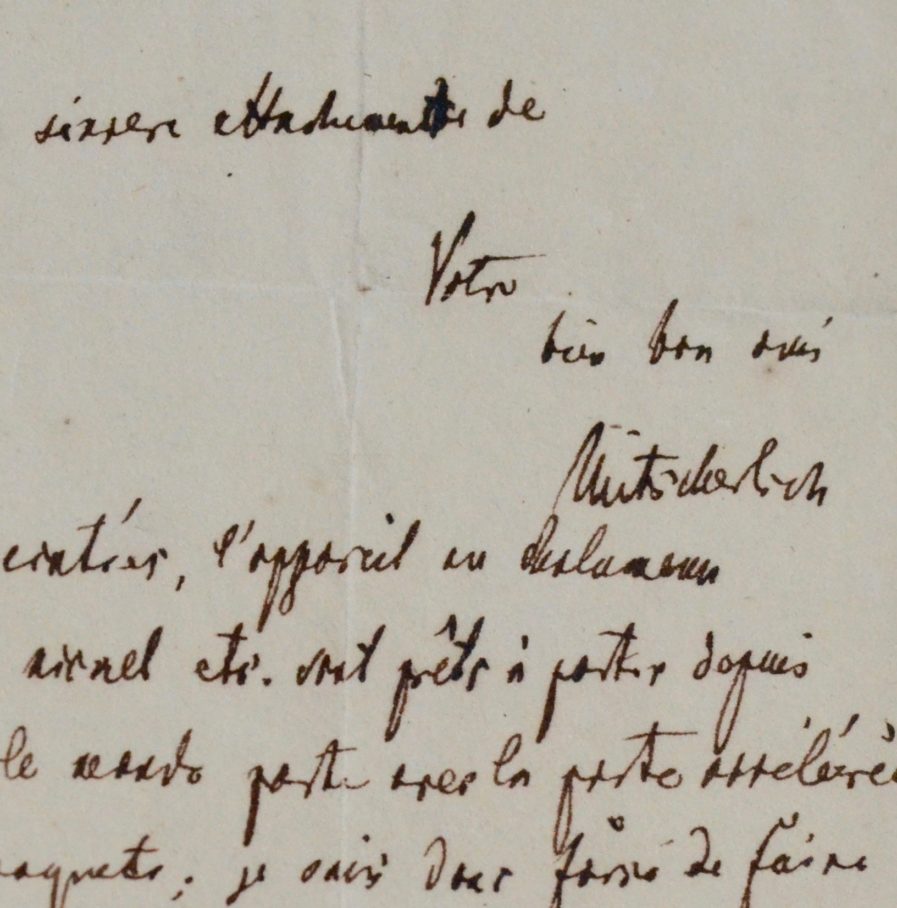 sincere attachement de
Votre
bien bon ami
Mitscherlich
l'appareil au chalumeau
nickel etc. sont prêts à partir depuis
le monde part avec la poste accélérée
paquets; je suis donc forcé de faire